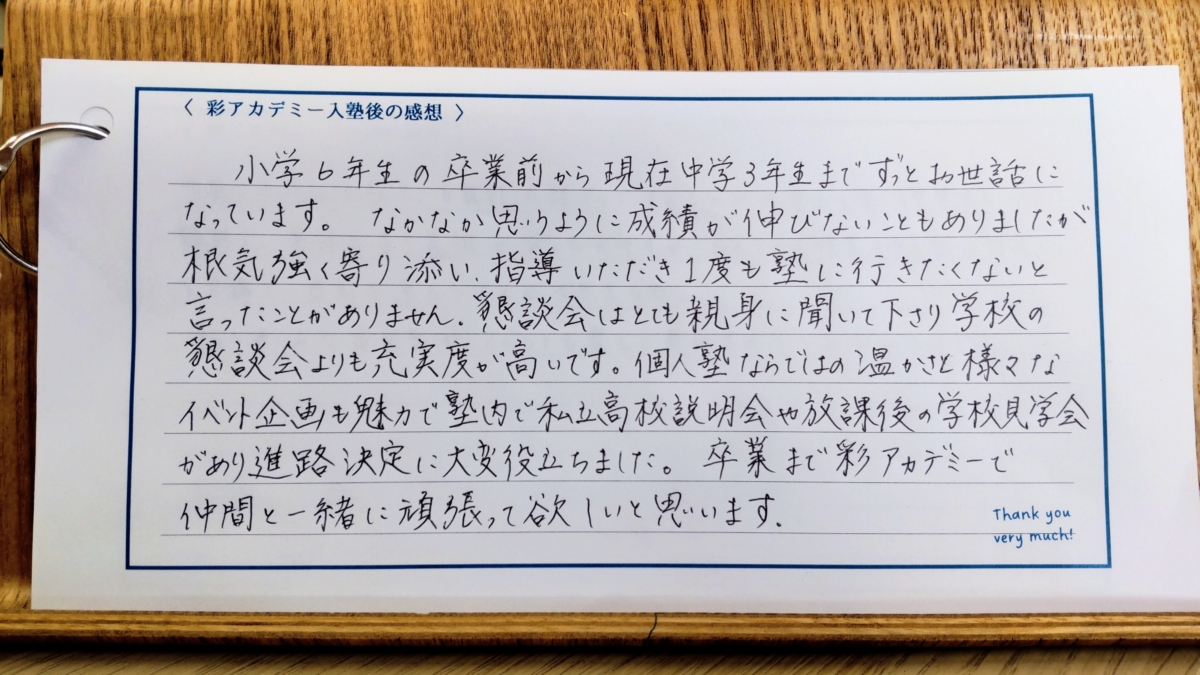 〈 彩アカデミー入塾後の感想 〉
小学6年生の卒業前から現在中学3年生までずっとお世話に
なっています。 なかなか思うように成績が伸びないこともありましたが
根気強く寄り添い、指導いただき1度も塾に行きたくないと
言ったことがありません。懇談会はとても親身に聞いて下さり学校の
懇談会よりも充実度が高いです。個人塾ならではの温かさと様々な
イベント企画も魅力で塾内で私立高校説明会や放課後の学校見学会
があり進路決定に大変役立ちました。 卒業まで彩アカデミーで
仲間と一緒に頑張って欲しいと思います。
Thank you
very much!